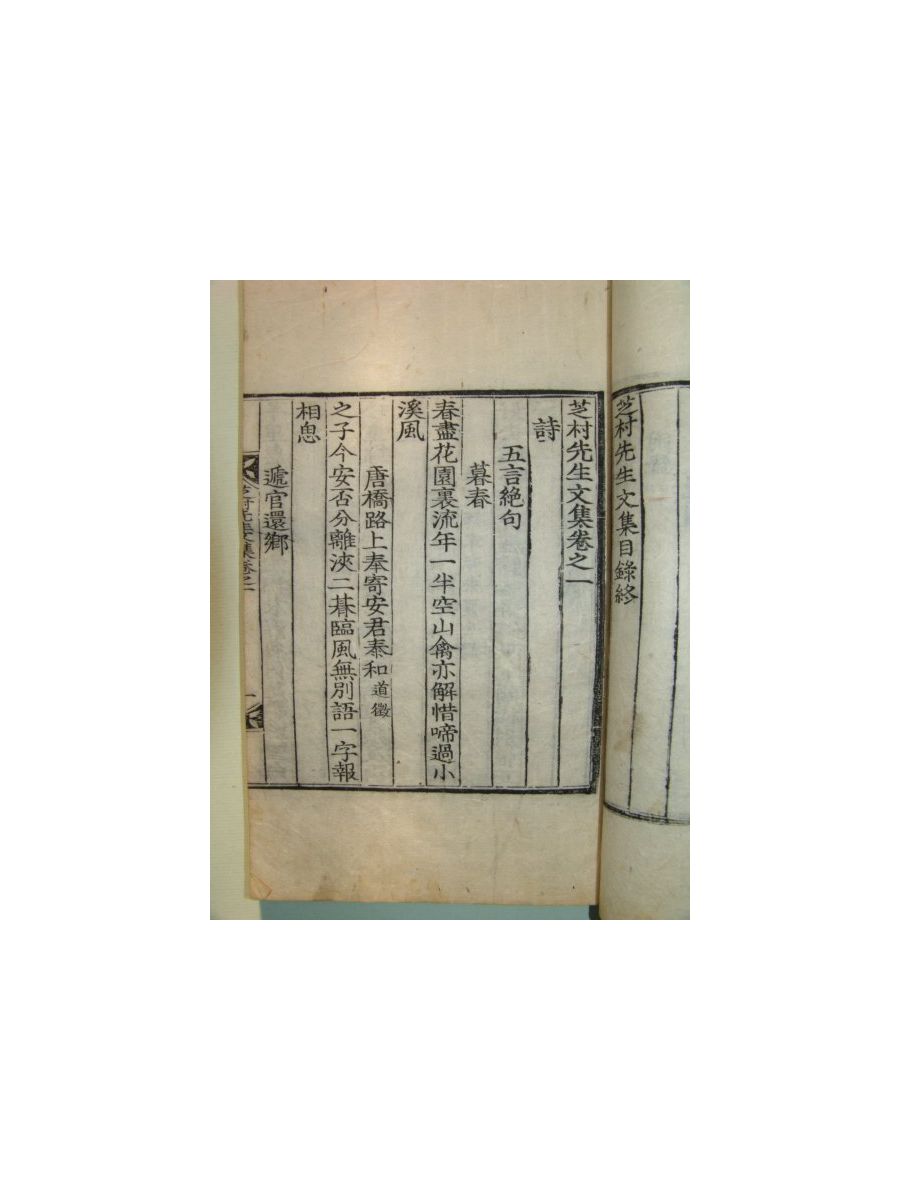 芝村先生文集目錄終
芝村先生文集卷之一
詩
五言絶句
暮春
春盡花園裏流年一半空山禽亦解惜啼過小
溪風
唐橋路上奉寄安君泰和道徵
之子今安否分離浹二朞臨風無別語一字報
相思
遞官還鄉
芝村先生文集卷之一
一